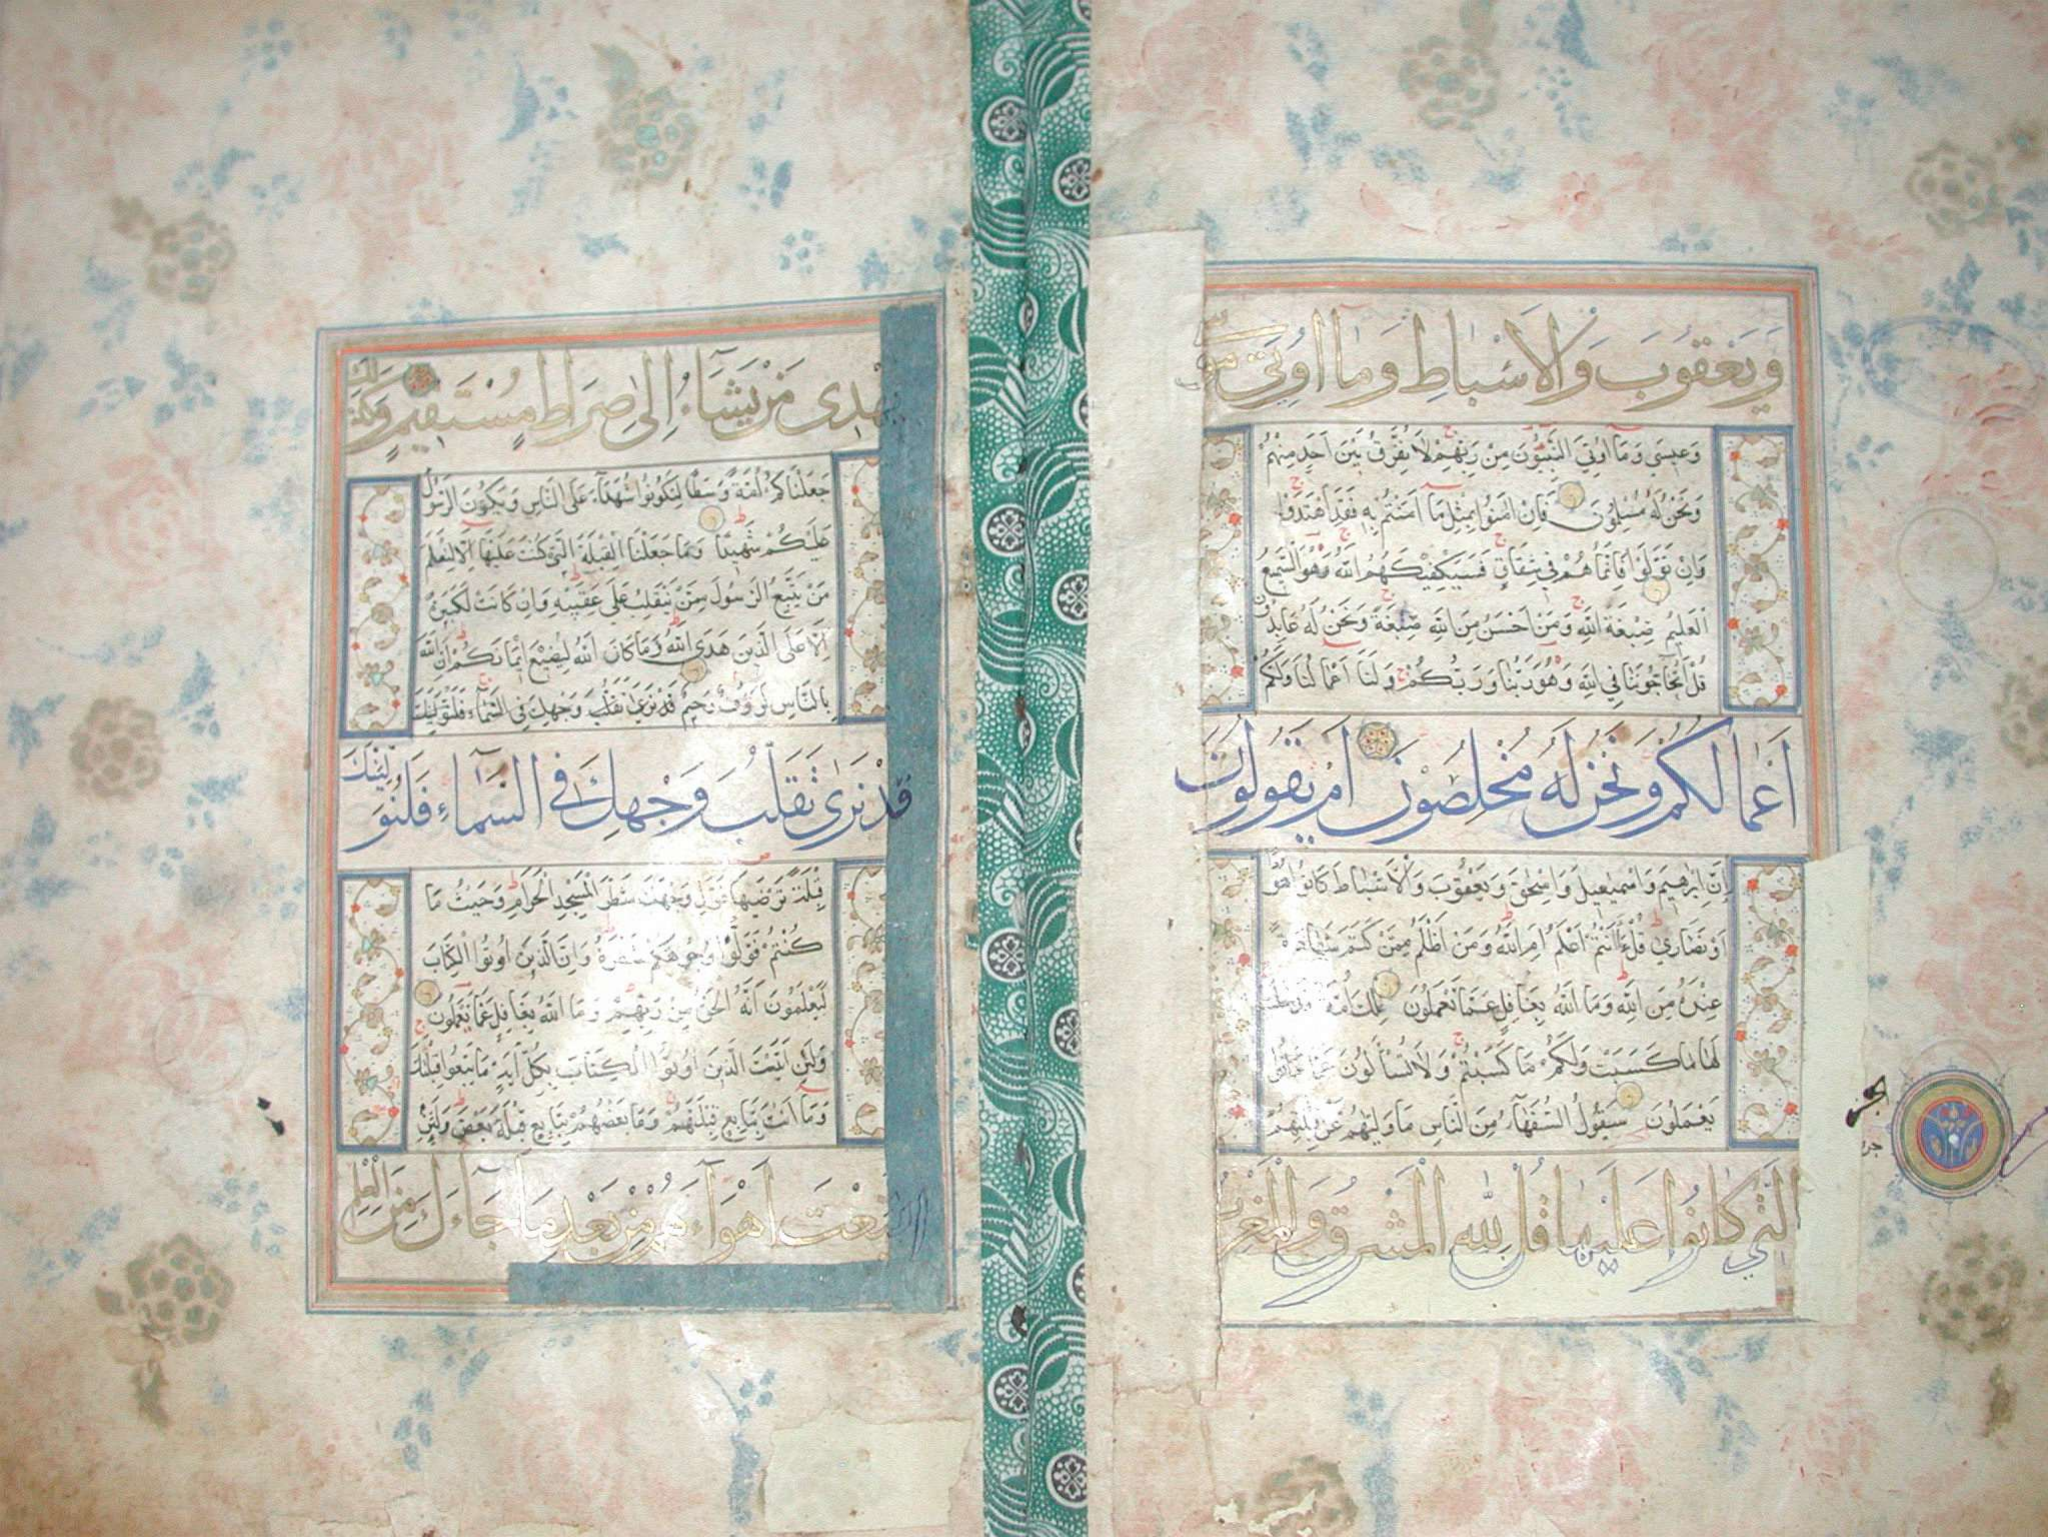 وَيَعْقُوبَ وَالْاَسْبَاطِ وَمَا اُوتِيَ مُوسٰى
وَعِيسَى وَمَا اُوتِيَ النَّبِيُّونَ مِنْ رَبِّهِمْ لَا نُفَرِّقُ بَيْنَ اَحَدٍ مِنْهُمْ
وَنَحْنُ لَهُ مُسْلِمُونَ فَاِنْ اٰمَنُوا بِمِثْلِ مَا اٰمَنْتُمْ بِهِ فَقَدِ اهْتَدَوْا
وَاِنْ تَوَلَّوْا فَاِنَّمَا هُمْ فِي شِقَاقٍ فَسَيَكْفِيكَهُمُ اللّٰهُ وَهُوَ السَّمِيعُ
الْعَلِيمُ صِبْغَةَ اللّٰهِ وَمَنْ اَحْسَنُ مِنَ اللّٰهِ صِبْغَةً وَنَحْنُ لَهُ عَابِدُونَ
قُلْ اَتُحَاجُّونَنَا فِي اللّٰهِ وَهُوَ رَبُّنَا وَرَبُّكُمْ وَلَنَا اَعْمَالُنَا وَلَكُمْ
اَعْمَالُكُمْ وَنَحْنُ لَهُ مُخْلِصُونَ اَمْ يَقُولُونَ
اِنَّ اِبْرٰهِيمَ وَاِسْمٰعِيلَ وَاِسْحٰقَ وَيَعْقُوبَ وَالْاَسْبَاطَ كَانُوا هُودًا
اَوْ نَصَارٰي قُلْ ءَاَنْتُمْ اَعْلَمُ اَمِ اللّٰهُ وَمَنْ اَظْلَمُ مِمَّنْ كَتَمَ شَهَادَةً
عِنْدَهُ مِنَ اللّٰهِ وَمَا اللّٰهُ بِغَافِلٍ عَمَّا تَعْمَلُونَ تِلْكَ اُمَّةٌ قَدْ خَلَتْ
لَهَا مَا كَسَبَتْ وَلَكُمْ مَا كَسَبْتُمْ وَلَا تُسْأَلُونَ عَمَّا كَانُوا
يَعْمَلُونَ سَيَقُولُ السُّفَهَآءُ مِنَ النَّاسِ مَا وَلّٰيهُمْ عَنْ قِبْلَتِهِمُ
الَّتِي كَانُوا عَلَيْهَا قُلْ لِلّٰهِ الْمَشْرِقُ وَالْمَغْرِبُ
يَهْدِي مَنْ يَشَآءُ اِلٰى صِرَاطٍ مُسْتَقِيمٍ وَكَذٰلِكَ
جَعَلْنَاكُمْ اُمَّةً وَسَطًا لِتَكُونُوا شُهَدَآءَ عَلَى النَّاسِ وَيَكُونَ الرَّسُولُ
عَلَيْكُمْ شَهِيدًا وَمَا جَعَلْنَا الْقِبْلَةَ الَّتِي كُنْتَ عَلَيْهَا اِلَّا لِنَعْلَمَ
مَنْ يَتَّبِعُ الرَّسُولَ مِمَّنْ يَنْقَلِبُ عَلٰى عَقِبَيْهِ وَاِنْ كَانَتْ لَكَبِيرَةً
اِلَّا عَلَى الَّذِينَ هَدَى اللّٰهُ وَمَا كَانَ اللّٰهُ لِيُضِيعَ اِيمَانَكُمْ اِنَّ اللّٰهَ
بِالنَّاسِ لَرَؤُفٌ رَحِيمٌ قَدْ نَرٰى تَقَلُّبَ وَجْهِكَ فِي السَّمَآءِ فَلَنُوَلِّيَنَّكَ
قَدْ نَرٰى تَقَلُّبَ وَجْهِكَ فِي السَّمَآءِ فَلَنُوَلِّيَنَّكَ
قِبْلَةً تَرْضٰيهَا فَوَلِّ وَجْهَكَ شَطْرَ الْمَسْجِدِ الْحَرَامِ وَحَيْثُ مَا
كُنْتُمْ فَوَلُّوا وُجُوهَكُمْ شَطْرَهُ وَاِنَّ الَّذِينَ اُوتُوا الْكِتَابَ
لَيَعْلَمُونَ اَنَّهُ الْحَقُّ مِنْ رَبِّهِمْ وَمَا اللّٰهُ بِغَافِلٍ عَمَّا يَعْمَلُونَ
وَلَئِنْ اَتَيْتَ الَّذِينَ اُوتُوا الْكِتَابَ بِكُلِّ اٰيَةٍ مَا تَبِعُوا قِبْلَتَكَ
وَمَا اَنْتَ بِتَابِعٍ قِبْلَتَهُمْ وَمَا بَعْضُهُمْ بِتَابِعٍ قِبْلَةَ بَعْضٍ وَلَئِنِ
اتَّبَعْتَ اَهْوَآءَهُمْ مِنْ بَعْدِ مَا جَآءَكَ مِنَ الْعِلْمِ